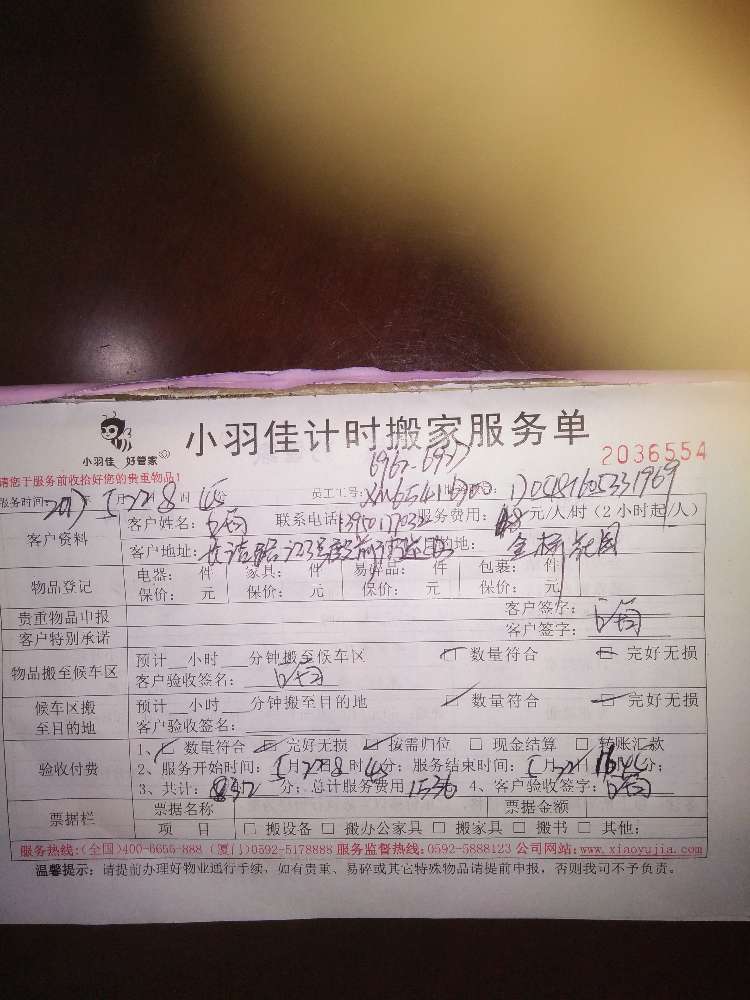 小羽佳 好管家
小羽佳计时搬家服务单
2036554
请您于服务前收拾好您的贵重物品!
6967-6977
服务时间: 2017 月22 8时45分 员工工号: XM654
客户资料
客户姓名: 联系电话: 服务费用: 元/人/时(2小时起/人)
客户地址: 目的地: 金桥花园
物品登记
电器: 件 家具: 件 易碎品: 件 包裹: 件
保价: 元 保价: 元 保价: 元 保价: 元
贵重物品申报 客户签字:
客户特别承诺 客户签字:
物品搬至候车区
预计 小时 分钟搬至候车区 数量符合 完好无损
客户验收签名:
候车区搬至目的地
预计 小时 分钟搬至目的地 数量符合 完好无损
客户验收签名:
验收付费
1、 数量符合 完好无损 按需归位 □ 现金结算 □ 转账汇款
2、服务开始时间: 月22 8时45分; 服务结束时间: 月22
3、共计: 分; 总计服务费用 1536 4、客户验收签字:
票据栏
票据名称 票据金额
项 目 □ 搬设备 □ 搬办公家具 □ 搬家具 □ 搬书 □ 其他:
服务热线:(全国)400-6655-888 (厦门)0592-5178888 服务监督热线:0592-5888123 公司网站:www.xiaoyujia.com
温馨提示: 请提前办理好物业通行手续,如有贵重、易碎或其它特殊物品请提前申报,否则我司不予负责。